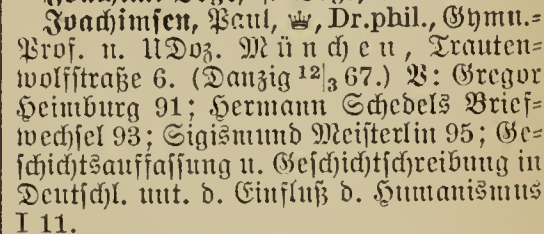 Joachimsen, Paul, ♛, Dr.phil., Gymn.=
Prof. u. UDoz. München, Trauten=
wolfstraße 6. (Danzig 12|3 67.) V: Gregor
Heimburg 91; Hermann Schedels Brief=
wechsel 93; Sigismund Meisterlin 95; Ge=
schichtsauffassung u. Geschichtschreibung in
Deutschl. unt. d. Einfluß d. Humanismus
I 11.